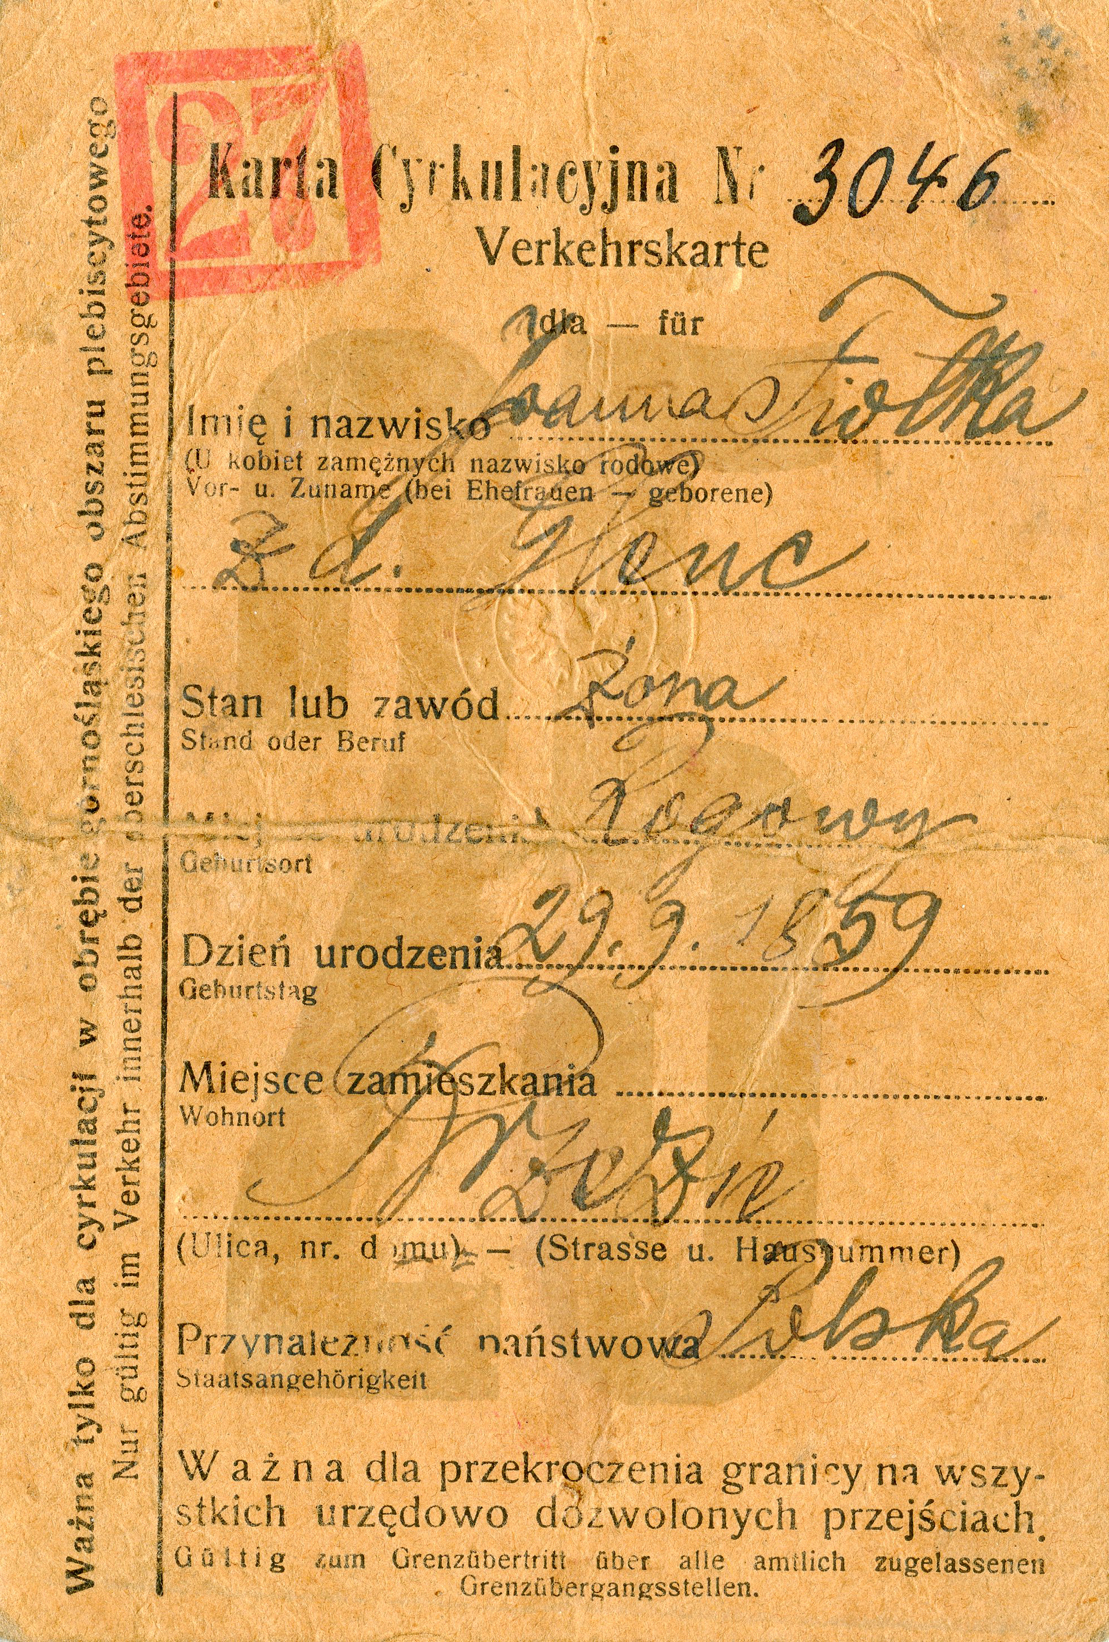 27
Karta Cyrkulacyjna Nr 3046
Verkehrskarte
dla — für
Imię i nazwisko Joanna Fiołka
(U kobiet zamężnych nazwisko rodowe)
Vor- u. Zuname (bei Ehefrauen — geborene)
z d.
Stan lub zawód Żona
Stand oder Beruf
Miejsce urodzenia Rogowy
Geburtsort
Dzień urodzenia 29. 9. 1859
Geburtstag
Miejsce zamieszkania
Wohnort
(Ulica, nr. domu) — (Strasse u. Hausnummer)
Przynależność państwowa Polska
Staatsangehörigkeit
Ważna dla przekroczenia granicy na wszy-
stkich urzędowo dozwolonych przejściach.
Gültig zum Grenzübertritt über alle amtlich zugelassenen
Grenzübergangsstellen.
Ważna tylko dla cyrkulacji w obrębie górnośląskiego obszaru plebiscytowego
Nur gültig im Verkehr innerhalb der oberschlesischen Abstimmungsgebiete.